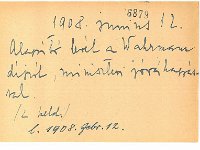 8874
1908. junius 12.
Alapító levél a Wahrmann
díjról, miniszteri jóváhagyás-
sal.
l. 1908. febr. 12.